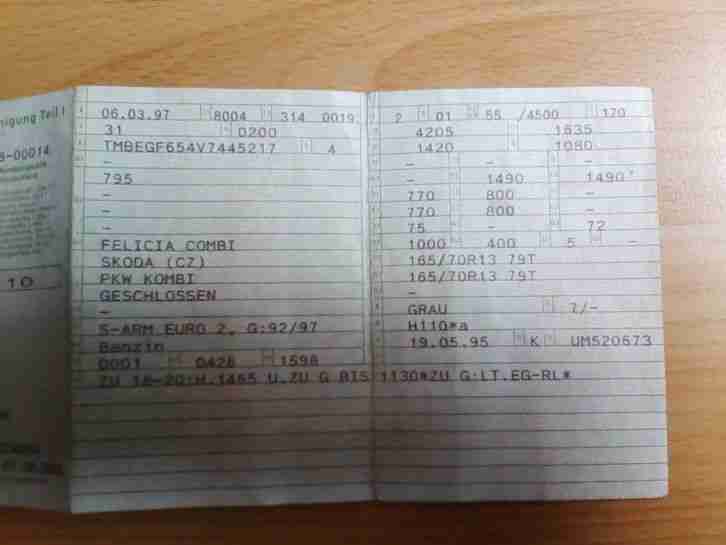 nigung Teil I
-00014
10
06.03.97 8004 314 0019
31 0200
TMBEGF654V7445217 4
-
795
-
-
-
FELICIA COMBI
SKODA (CZ)
PKW KOMBI
GESCHLOSSEN
-
S-ARM EURO 2, G:92/97
Benzin
0001 0426 1598
2 01 55 /4500 170
4205 1635
1420 1080
- - -
- 1490 1490*
770 800 -
770 800 -
75 - 72
1000 400 5 -
165/70R13 79T
165/70R13 79T
-
GRAU 7/-
H110*a
19.05.95 K UM520673
ZU 18-20:H.1465 U.ZU G BIS 1130*ZU G:LT.EG-RL*